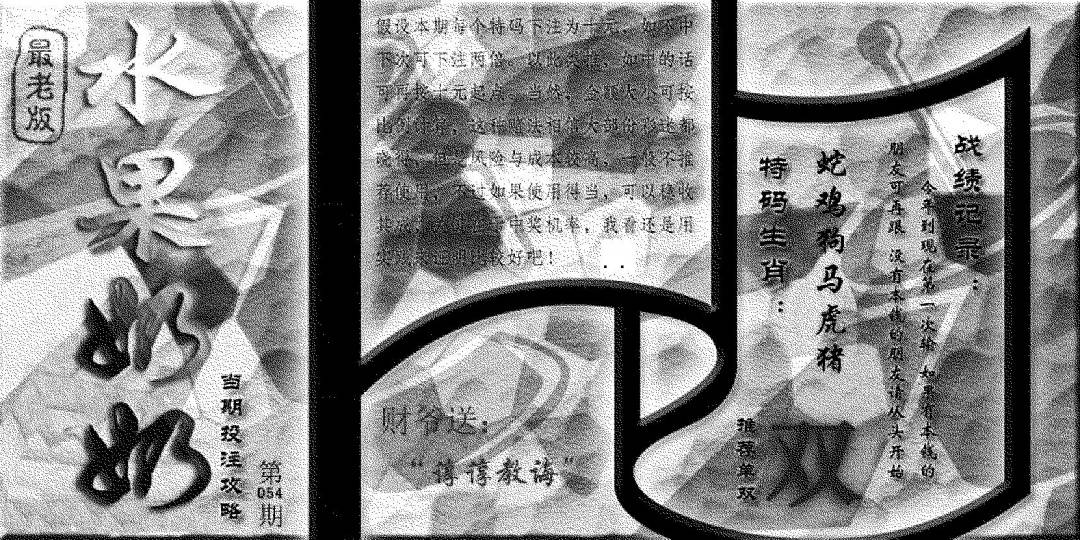 最老版
水果奶奶
当期投注攻略
第054期
假设本期每个特码下注为十元，如不中
下次可下注两倍。以此类推，如中的话
可再按十元起点。当然，金额大小可按
比例，这种赌法相信大部份彩迷都
风险与成本较高，一般不推
荐使用，不过如果使用得当，可以稳收
中奖机率，我看还是用
比较好吧！
财爷送：
“谆谆教诲”
战绩记录：
今年到现在第一次输 如果有本钱的
朋友可再跟 没有本钱的朋友请从头开始
蛇鸡狗马虎猪
特码生肖：
推荐单双
双